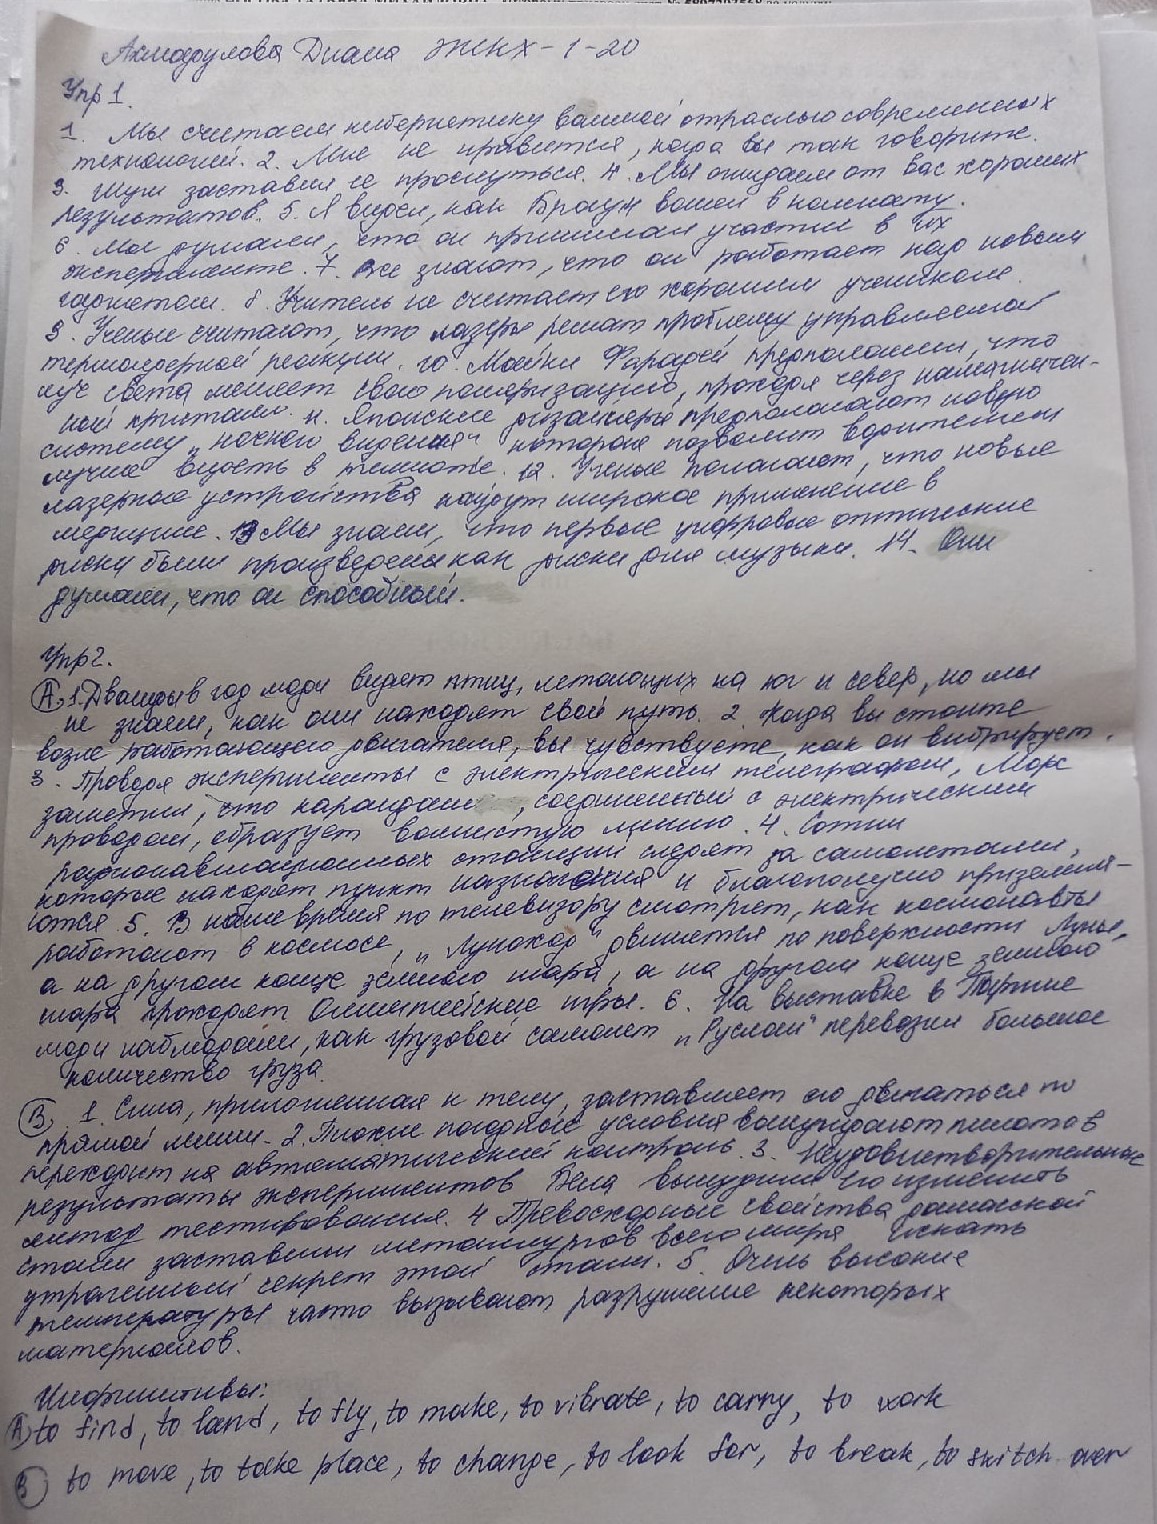 Ахмадулова Диана ЖКХ-1-20
Упр 1.
1. Мы считаем кибернетику важной отраслью современных
технологий. 2. Мне не нравится, когда вы так говорите.
3. Шум заставил ее проснуться. 4. Мы ожидаем от вас хороших
результатов. 5. Я видел, как Браун вошел в комнату.
6. Мы думали, что он принимал участие в их
эксперименте. 7. Все знают, что он работает над новым
гаджетом. 8. Учитель не считает его хорошим учеником.
9. Ученые считают, что лазеры решат проблему управляемой
термоядерной реакции. 10. Майкл Фарадей предположил, что
луч света меняет свою поляризацию, проходя через намагничен-
ный кристалл. 11. Японские дизайнеры предполагают новую
систему „ночного видения" которая позволит водителям
лучше видеть в темноте. 12. Ученые полагают, что новые
лазерные устройства найдут широкое применение в
медицине. 13 Мы знаем, что первые цифровые оптические
диски были произведены как диски для музыки. 14. Они
думали, что он способный.
Упр 2.
А. 1. Дважды в год люди видят птиц, летающих на юг и север, но мы
не знаем, как они находят свой путь. 2. Когда вы стоите
возле работающего двигателя, вы чувствуете, как он вибрирует.
3. Проводя эксперименты с электрическим телеграфом, Морс
заметил, что карандаш, соединенный с электрическим
проводом, образует волнистую линию. 4. Сотни
радионавигационных станций следят за самолетами,
которые находят пункт назначения и благополучно приземля-
ются. 5. В наше время по телевизору смотрят, как космонавты
работают в космосе, „Луноход" движется по поверхности Луны,
а на другом конце земного шара, а на другом конце земного
шара проходят Олимпийские игры. 6. На выставке в Париже
люди наблюдали, как грузовой самолет „Руслан" перевозил большое
количество груза.
В. 1. Сила, приложенная к телу, заставляет его двигаться по
прямой линии. 2. Плохие погодные условия вынуждают пилотов
переходить на автоматический контроль. 3. Неудовлетворительные
результаты экспериментов Белла вынудили его изменить
метод тестирования. 4 Превосходные свойства дамасской
стали заставили металлургов всего мира искать
утраченный секрет этой стали. 5. Очень высокие
температуры часто вызывают разрушение некоторых
материалов.
Инфинитивы:
А to find, to land, to fly, to make, to vibrate, to carry, to work
В to move, to take place, to change, to look for, to break, to switch over